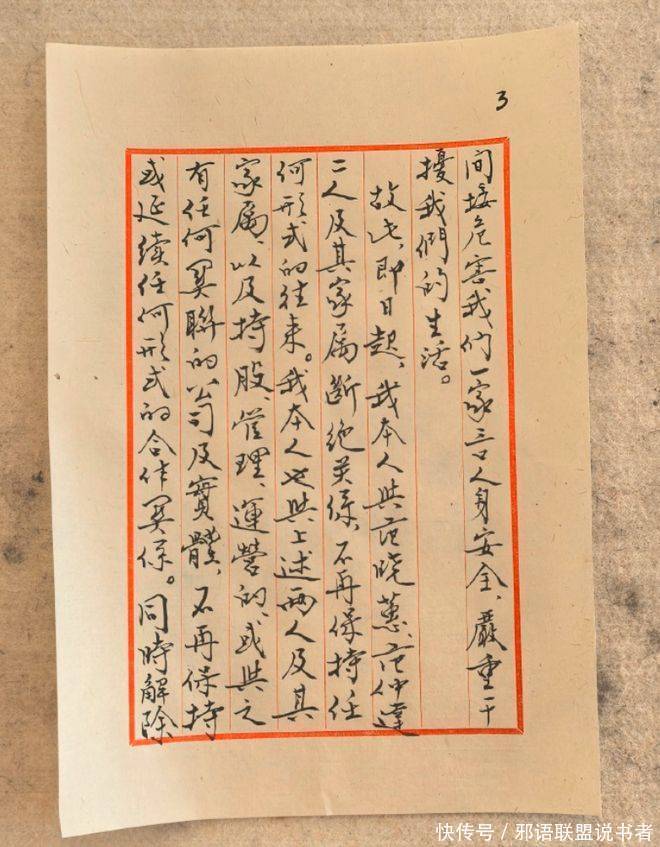 3
间接危害我们一家三口人身安全、嚴重干
擾我們的生活。
故此,即日起、我本人與范晓蕙、范仲達
二人及其家属斷绝关係、不再保持任
何形式的往来。我本人也與上述两人及其
家属、以及持股、管理、運营的、或與之
有任何関聯的公司及實體、不再保持
或延續任何形式的合作関係。同時解除
快传号/邪语联盟说书者